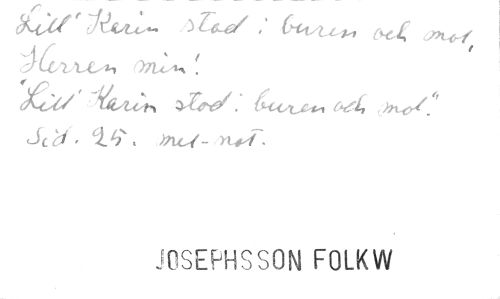 Lill' Karin stod i buren och mol,
Herren min!
"Lill' Karin stod i buren och mol".
Sid. 25. mel-not.
JOSEPHSSON FOLKW